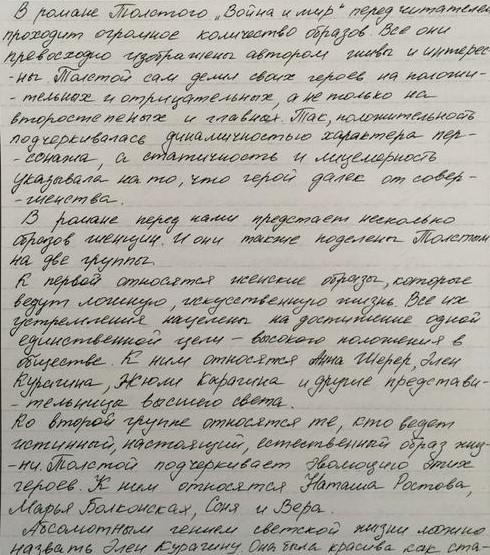 В романе Толстого „Война и мир" перед читателем
проходит огромное количество образов. Все они
превосходно изображены автором живы и интерес-
-ны Толстой сам делил своих героев на положи-
-тельных и отрицательных, а не только на
второстепеных и главных. Так, положительность
подчеркивалась динамичностью характера пер-
-сонажа, а статичность и лицемерность
указывала на то, что герой далек от совер-
-шенства.
В романе перед нами предстает несколько
образов женщин. И они также поделены Толстым
на две группы.
К первой относятся женские образы, которые
ведут ложную, искуственную жизнь. Все их
устремления нацелены на достижение одной
единственной цели – высокого положения в
обществе. К ним относятся Анна Шерер, Элен
Курагина, Жюли Карагина и другие представи-
-тельница высшего света.
Ко второй группе относятся те, кто ведет
истинный, настоящий, естественный образ жиз-
-ни. Толстой подчеркивает эволюцию этих
героев. К ним относятся Наташа Ростова,
Марья Болконская, Соня и Вера.
Абсолютным гением светской жизни можно
назвать Элен Курагину. Она была красива как ста-